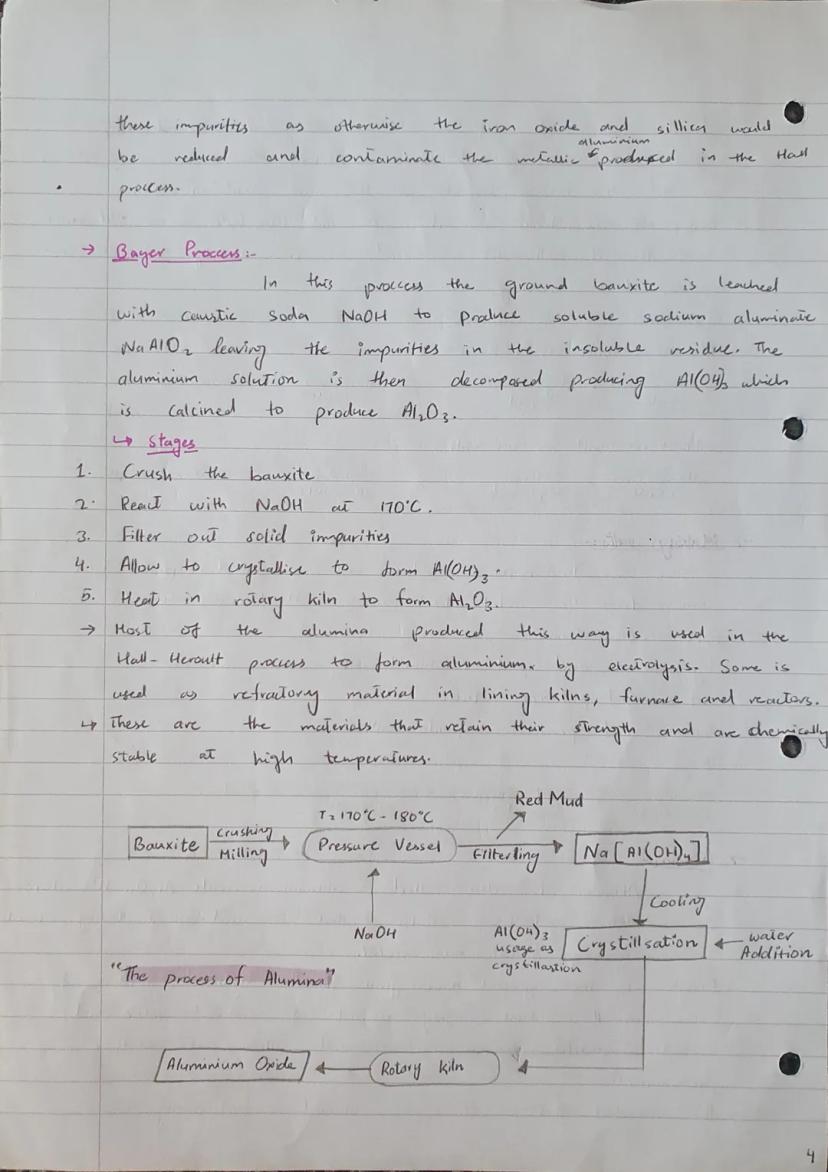 these impurities as otherwise the iron oxide and sillica would
be reduced and contaminate the metallic aluminium produced in the Hall
proccess.
→ Bayer Proccess:-
In this proccess the ground bauxite is leached
with caustic soda NaOH to produce soluble sodium aluminate
NaAlO₂ leaving the impurities in the insoluble residue. The
aluminium solution is then decomposed producing Al(OH)₃ which
is calcined to produce Al₂O₃.
↳ Stages
1. Crush the bauxite
2. React with NaOH at 170°C.
3. Filter out solid impurities
4. Allow to crystallise to form Al(OH)₃.
5. Heat in rotary kiln to form Al₂O₃.
→ Most of the alumina produced this way is used in the
Hall-Heroult proccess to form aluminium. by electrolysis. Some is
used as refractory material in lining kilns, furnace and reactors.
↳ These are the materials that retain their strength and are chemically
stable at high temperatures.
Red Mud
T = 170°C - 180°C
Bauxite Crushing Milling Pressure Vessel Filterling Na[Al(OH)₄]
Cooling
NaOH
Al(OH)₃ usage as crystillastion
Crystillsation
water Addition
"The process of Alumina"
Aluminium Oxide Rotory kiln
4